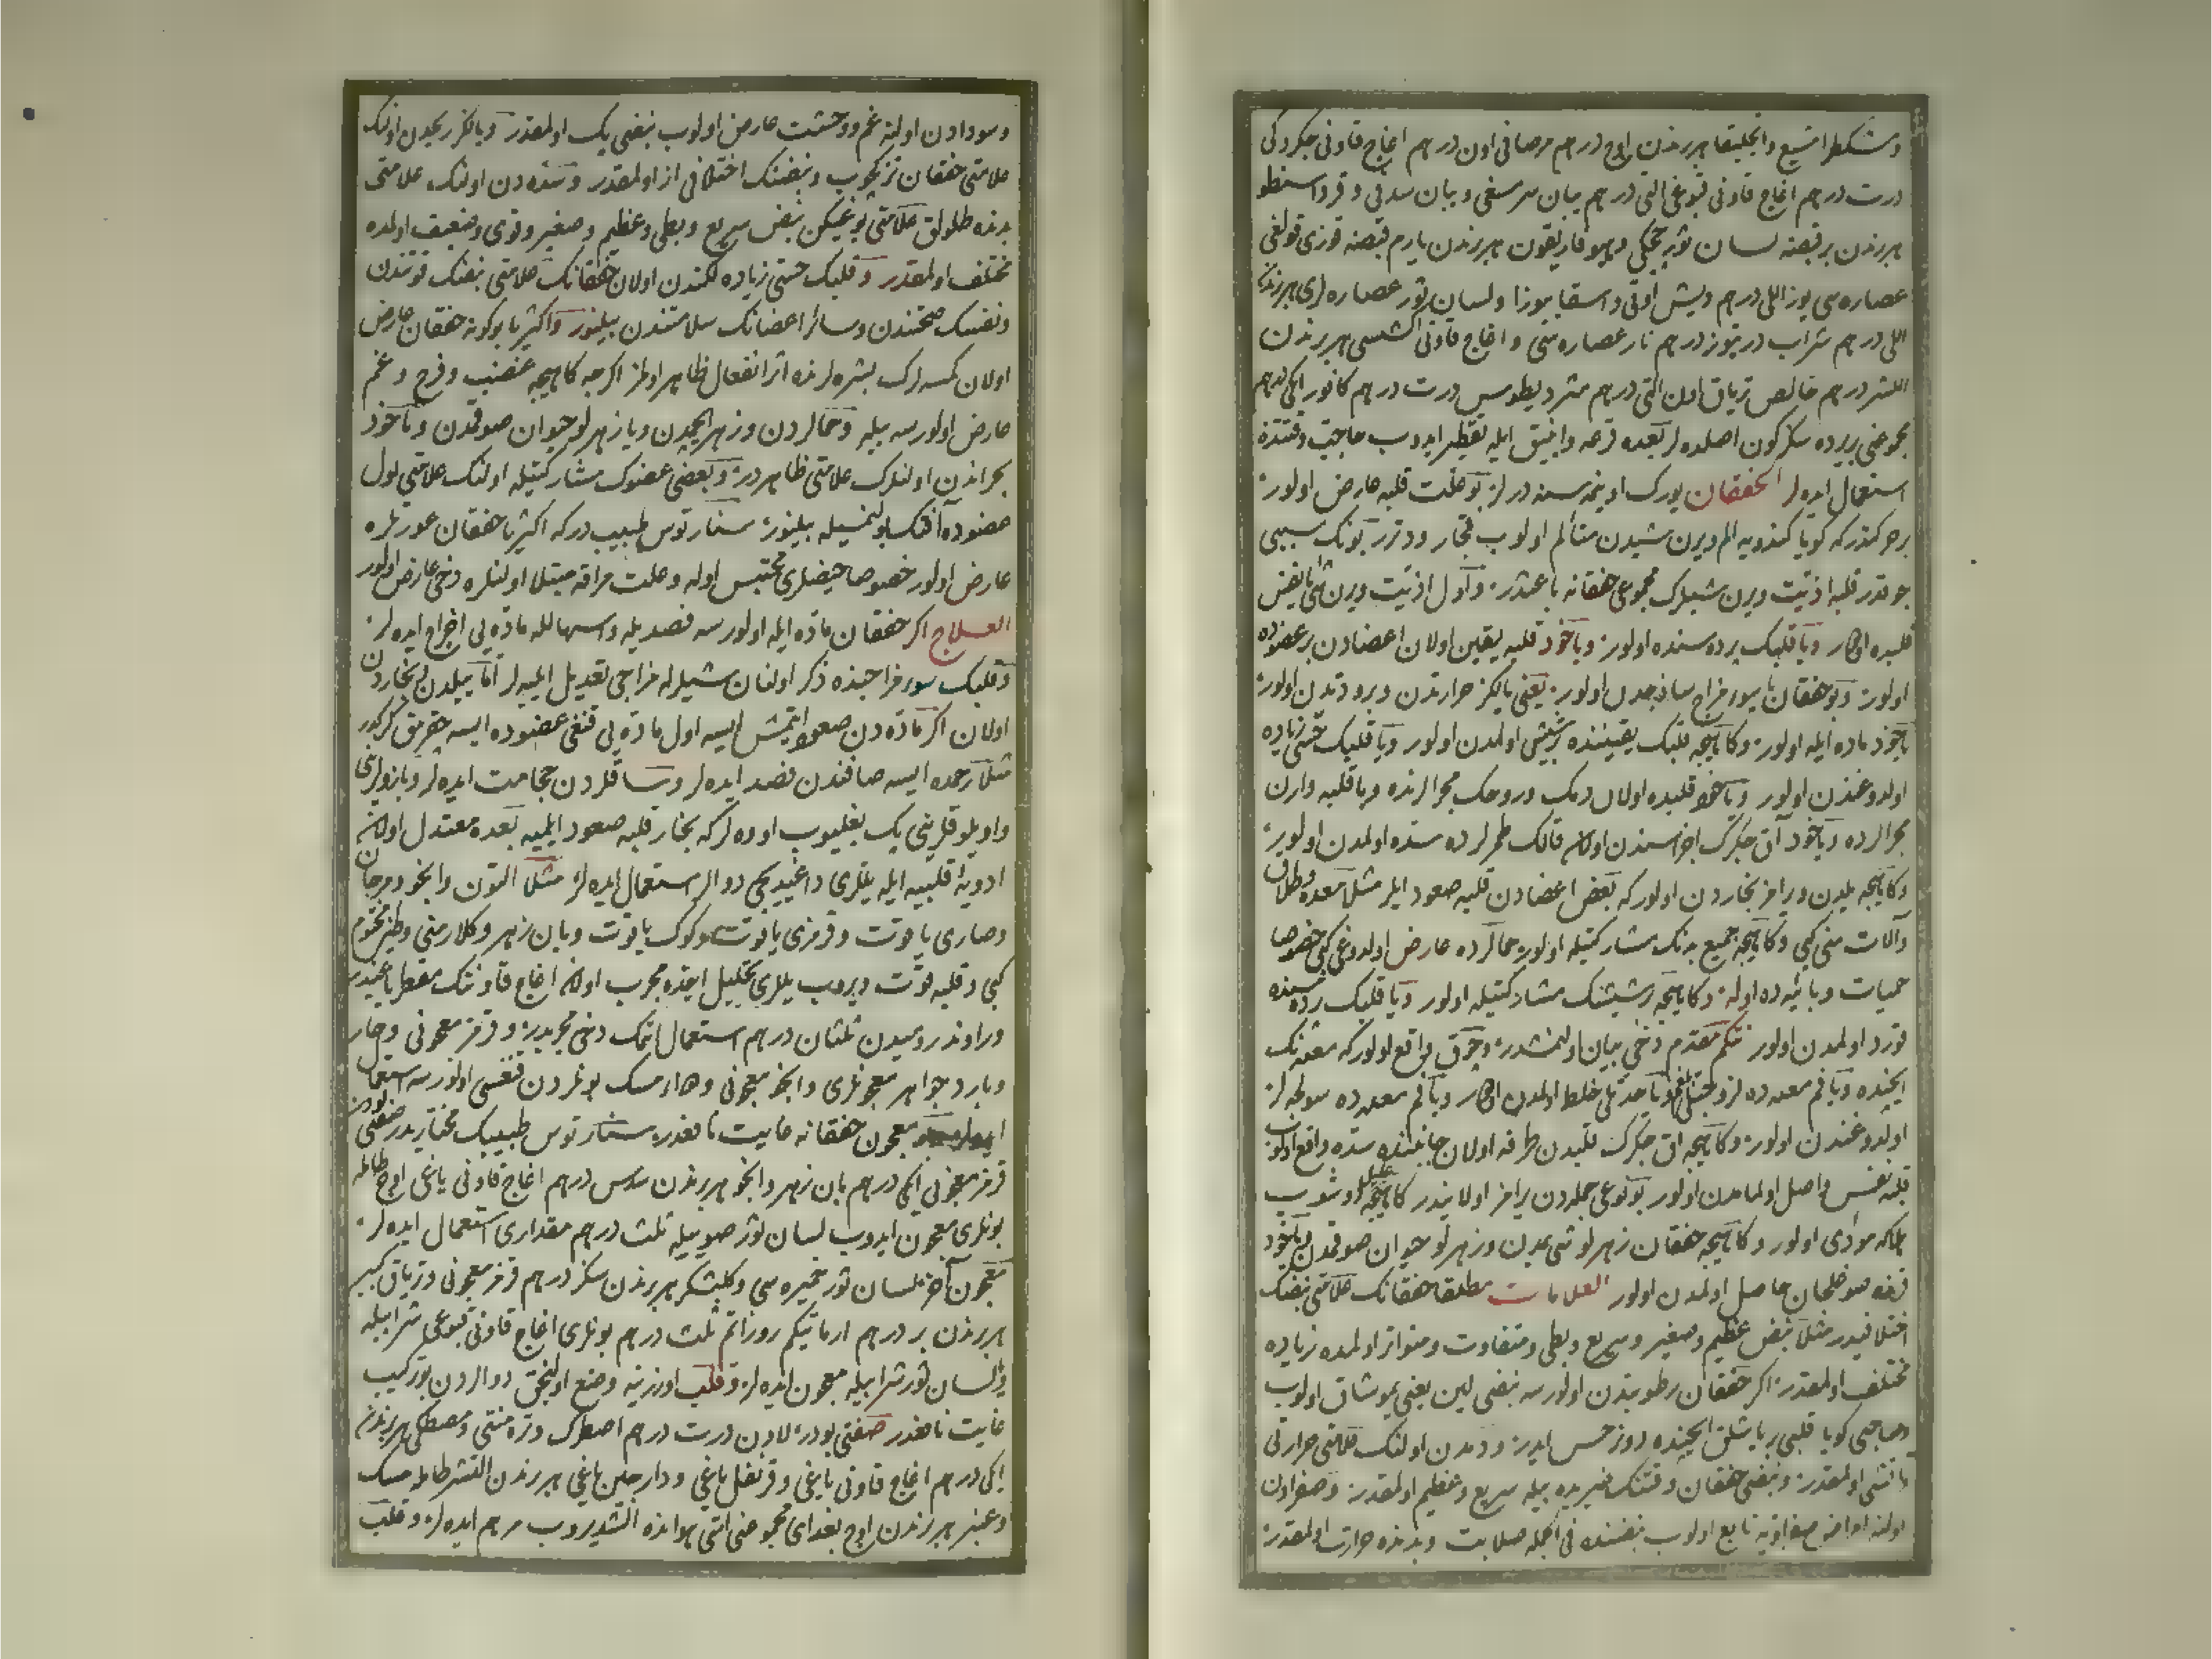 ومشكطرامشيع وانجليقا هر برندن اوچ درهم مرصافى اون درهم اغاج قاونى چكردكى
درت درهم اغاج قاونى قبوغى التى درهم يبان سرمسغى ويبان سدفى و قرداسنطو
هر برندن بر قبضه لسان ثور چيچكى وهيوفاريقون هر برندن يارم قبضه قوزى قولاغى
عصاره سى يوز اللى درهم ويش اوتى واسقابيوزا ولسان ثور عصاره لرى هر برندن
اللى درهم شراب درتيوز درهم نار عصاره سى و اغاج قاونى اكشيسى هر برندن
التمشر درهم خالص ترياق اون التى درهم مثرديطوس درت درهم كافور ايكى درهم
مجموعنى بر يرده سكز كون اصلدهلر بعده قرعه وانبيق ايله تقطير ايدوب حاجت وقتنده
استعمال ايدهلر الخفقان يورك اوينمه سنه ديرلر بو علت قلبه عارض اولور
بر حركتدركه كويا كندويه الم ويرن شيدن متألم اولوب قچار و دترر بونك سببى
چوقدر قلبه اذيت ويرن شيلرك مجموعى خفقانه باعثدر و اول اذيت ويرن شى يا نفس
قلبده اولور ويا قلبك پرده سنده اولور ويا خود قلبه يقين اولان اعضادن بر عضوده
اولور و بو خفقان يا سوء مزاج ساذجدن اولور يعنى يالكز حرارتدن و برودتدن اولور
يا خود ماده ايله اولور و كاهيجه قلبك يقيننده بر شيش اولمدن اولور ويا قلبك حسى زياده
اولدوغندن اولور ويا خود قلبده اولان دمك و روحك مجرالرنده ويا قلبه وارن
مجرالرده ويا خود آق جكرك اجزاسندن اولان قانك طمرلرده سده اولمدن اولور
وكاهيجه يلدن ويرامز بخاردن اولور كه بعض اعضادن قلبه صعود ايلر مثلا معده وطلاق
وآلات منى كبى و كاهيجه جميع بدنك مشاركتيله اولور حمالرده عارض اولدوغى كبى خصوصا
حميات وبائيه ده اوله و كاهيجه رشيشنك مشاركتيله اولور ويا قلبك پرده سنده
قورد اولمدن اولور نتكم مقدم دخى بيان اولنمشدر و چوق واقع اولور كه معده نك
ايچنده ويا فم معده ده لزوجتلى بلغم ويا حدتلى خلط اولمدن اولور ويا فم معده ده صولجانلر
اولدوغندن اولور و كاهيجه اق جكرك قلبدن طرفه اولان جانبنده سده واقع اولوب
قلبه نفس واصل اولمامدن اولور بو نوعى جمله دن يرامز اولانيدر كاهيجه علل اوشوب
هلاكه مؤدى اولور و كاهيجه خفقان زهرلو شى يمدن و زهرلو حيوان صوقمدن ويا خود
قرنده صوغلجان حاصل اولمدن اولور العلامات مطلقا خفقانك علامتى نبضك
اختلافيدر مثلا نبض عظيم و صغير و سريع و بطى و متفاوت و متواتر اولمده زياده
مختلف اولمقدر اكر خفقان رطوبتدن اولورسه نبضى لين يعنى يومشاق اولوب
وصاحبى كويا قلبى بر ياشلق ايچنده دورر حس ايدر و دمدن اولنك علامتى حرارتى
وآتشى اولمقدر و نبضى خفقان وقتنك غيريده بيله سريع و عظيم اولمقدر و صفرادن
اولنه اعراض صفراويه تابع اولوب نبضنده فى الجمله صلابت و بدنده حرارت اولمقدر
وسودادن اولنه غم و وحشت عارض اولوب نبضى پك اولمقدر ويالكز ريحدن اولنك
علامتى خفقان تز كچوب ونبضنك اختلافى از اولمقدر و سده دن اولنك علامتى
بدنده طلولق علامتى يوغيكن نبض سريع وبطى وعظيم وصغير وقوى وضعيف اولمده
مختلف اولمقدر وقلبك حسى زياده لكندن اولان خفقانك علامتى نبضك قوتندن
ونفسك صحتندن وسائر اعضانك سلامتندن بيلنور واكثريا بو كونه خفقان عارض
اولان كمسه لرك بشره لرنده اثر انفعال ظاهر اولمز اكرچه كاهيجه غضب و فرح و غم
عارض اولورسه بيله وحمالردن وزهر ايچمدن ويا زهرلو حيوان صوقمدن ويا خود
بحراندن اولنلرك علامتى ظاهردر وبعضى عضوك مشاركتيله اولنك علامتى اول
عضوده آفتك بولنمسيله بيلنور سنارتوس طبيب دركه اكثريا خفقان عورتلره
عارض اولور خصوصا حيضلرى محتبس اوله وعلت مراقه مبتلا اولنلره دخى عارض اولور
العلاج اكر خفقان ماده ايله اولورسه فصد يله واسهالله ماده يى اخراج ايدهلر
وقلبك سوء مزاجنده ذكر اولنان شيلرله مزاجى تعديل ايليهلر اما ييلدن وبخاردن
اولان اكر ماده دن صعود ايتمش ايسه اول ماده يى قنغى عضوده ايسه چقرمق كركدر
مثلا رحمده ايسه صافندن فصد ايدهلر وساقلردن حجامت ايدهلر وبازولرينى
واويلوقلرينى پك بغليوب اوده لر كه بخار قلبه صعود ايلميه بعده معتدل اولان
ادويه قلبيه ايله يللرى داغيديجى دوالر استعمال ايدهلر مثلا التون وانجو ومرجان
وصارى ياقوت وقرمزى ياقوت وكوك ياقوت وبان زهر وكل ارمنى وطين مختوم
كبى وقلبه قوت ويروب يللرى تحليل ايدر مجرب اولان اغاج قاوننك مقطر ياغيدر
وراوند رومييدن ثلثان درهم استعمال اتمك دخى مجربدر وقرمز معجونى وحار
وبارد جواهر معجونلرى وانجو معجونى ودواء مسك بونلردن قنغيسى اولورسه استعمال
ايدهلر معجون خفقانه غايت نافعدر سنارتوس طبيبك مختاريدر صفتى بودر
قرمز معجونى ايكى درهم بان زهر وانجو هر برندن سدس درهم اغاج قاونى ياغى اوچ طامله
بونلرى معجون ايدوب لسان ثور صوييله ثلث درهم مقدارى استعمال ايدهلر
معجون آخر لسان ثور خميره سى وكلبشكر هر برندن سكز درهم قرمز معجونى و ترياق كبير
هر برندن بر درهم ارماتيكم روزاتم ثلث درهم بونلرى اغاج قاونى قبوغى شرابيله
ولسان ثور شرابيله معجون ايدهلر وقلب اوزرينه وضع اولنجق دوالردن بو تركيب
غايت نافعدر صفتى بودر لادن درت درهم اصطرك و قره منتى و مصطكى هر برندن
ايكى درهم اغاج قاونى ياغى و قرنفل ياغى و دارچين ياغى هر برندن التمشر طامله مسك
وعنبر هر برندن اوچ بغداى مجموعنى اتى هواىده الشديروب مرهم ايدهلر و قلب